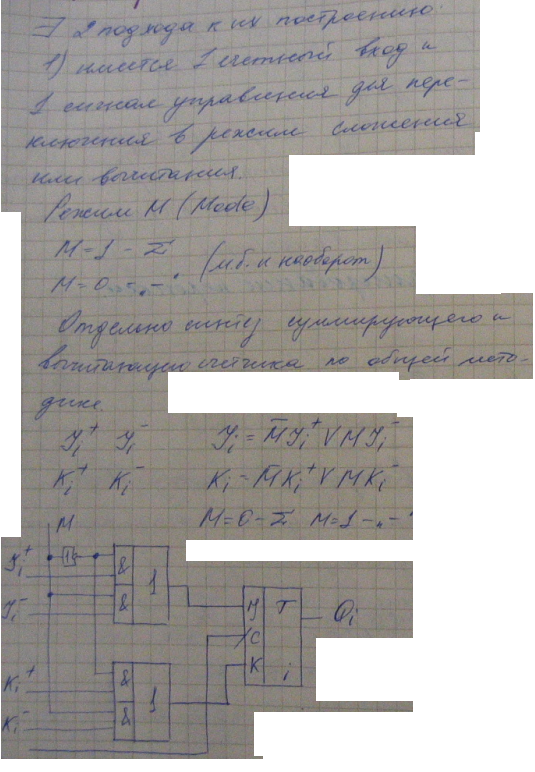 ∃ 2 подхода к их построению:
1) имеется 1 счетный вход и
1 сигнал управления для пере-
ключения в режим сложения
или вычитания.
Режим M (Mode)
M=1 - Σ (м.б. и наоборот)
M=0 - "-"
Отдельно синтез суммирующего и
вычитающего счетчика по общей мето-
дике.
J_i^+ J_i^- J_i = M̄J_i^+ ∨ MJ_i^-
K_i^+ K_i^- K_i = M̄K_i^+ ∨ MK_i^-
M=0-Σ M=1-"-"
M
J_i^+
J_i^-
1
&
&
1
J T
C
K i
Q_i
K_i^+
K_i^-
&
&
1